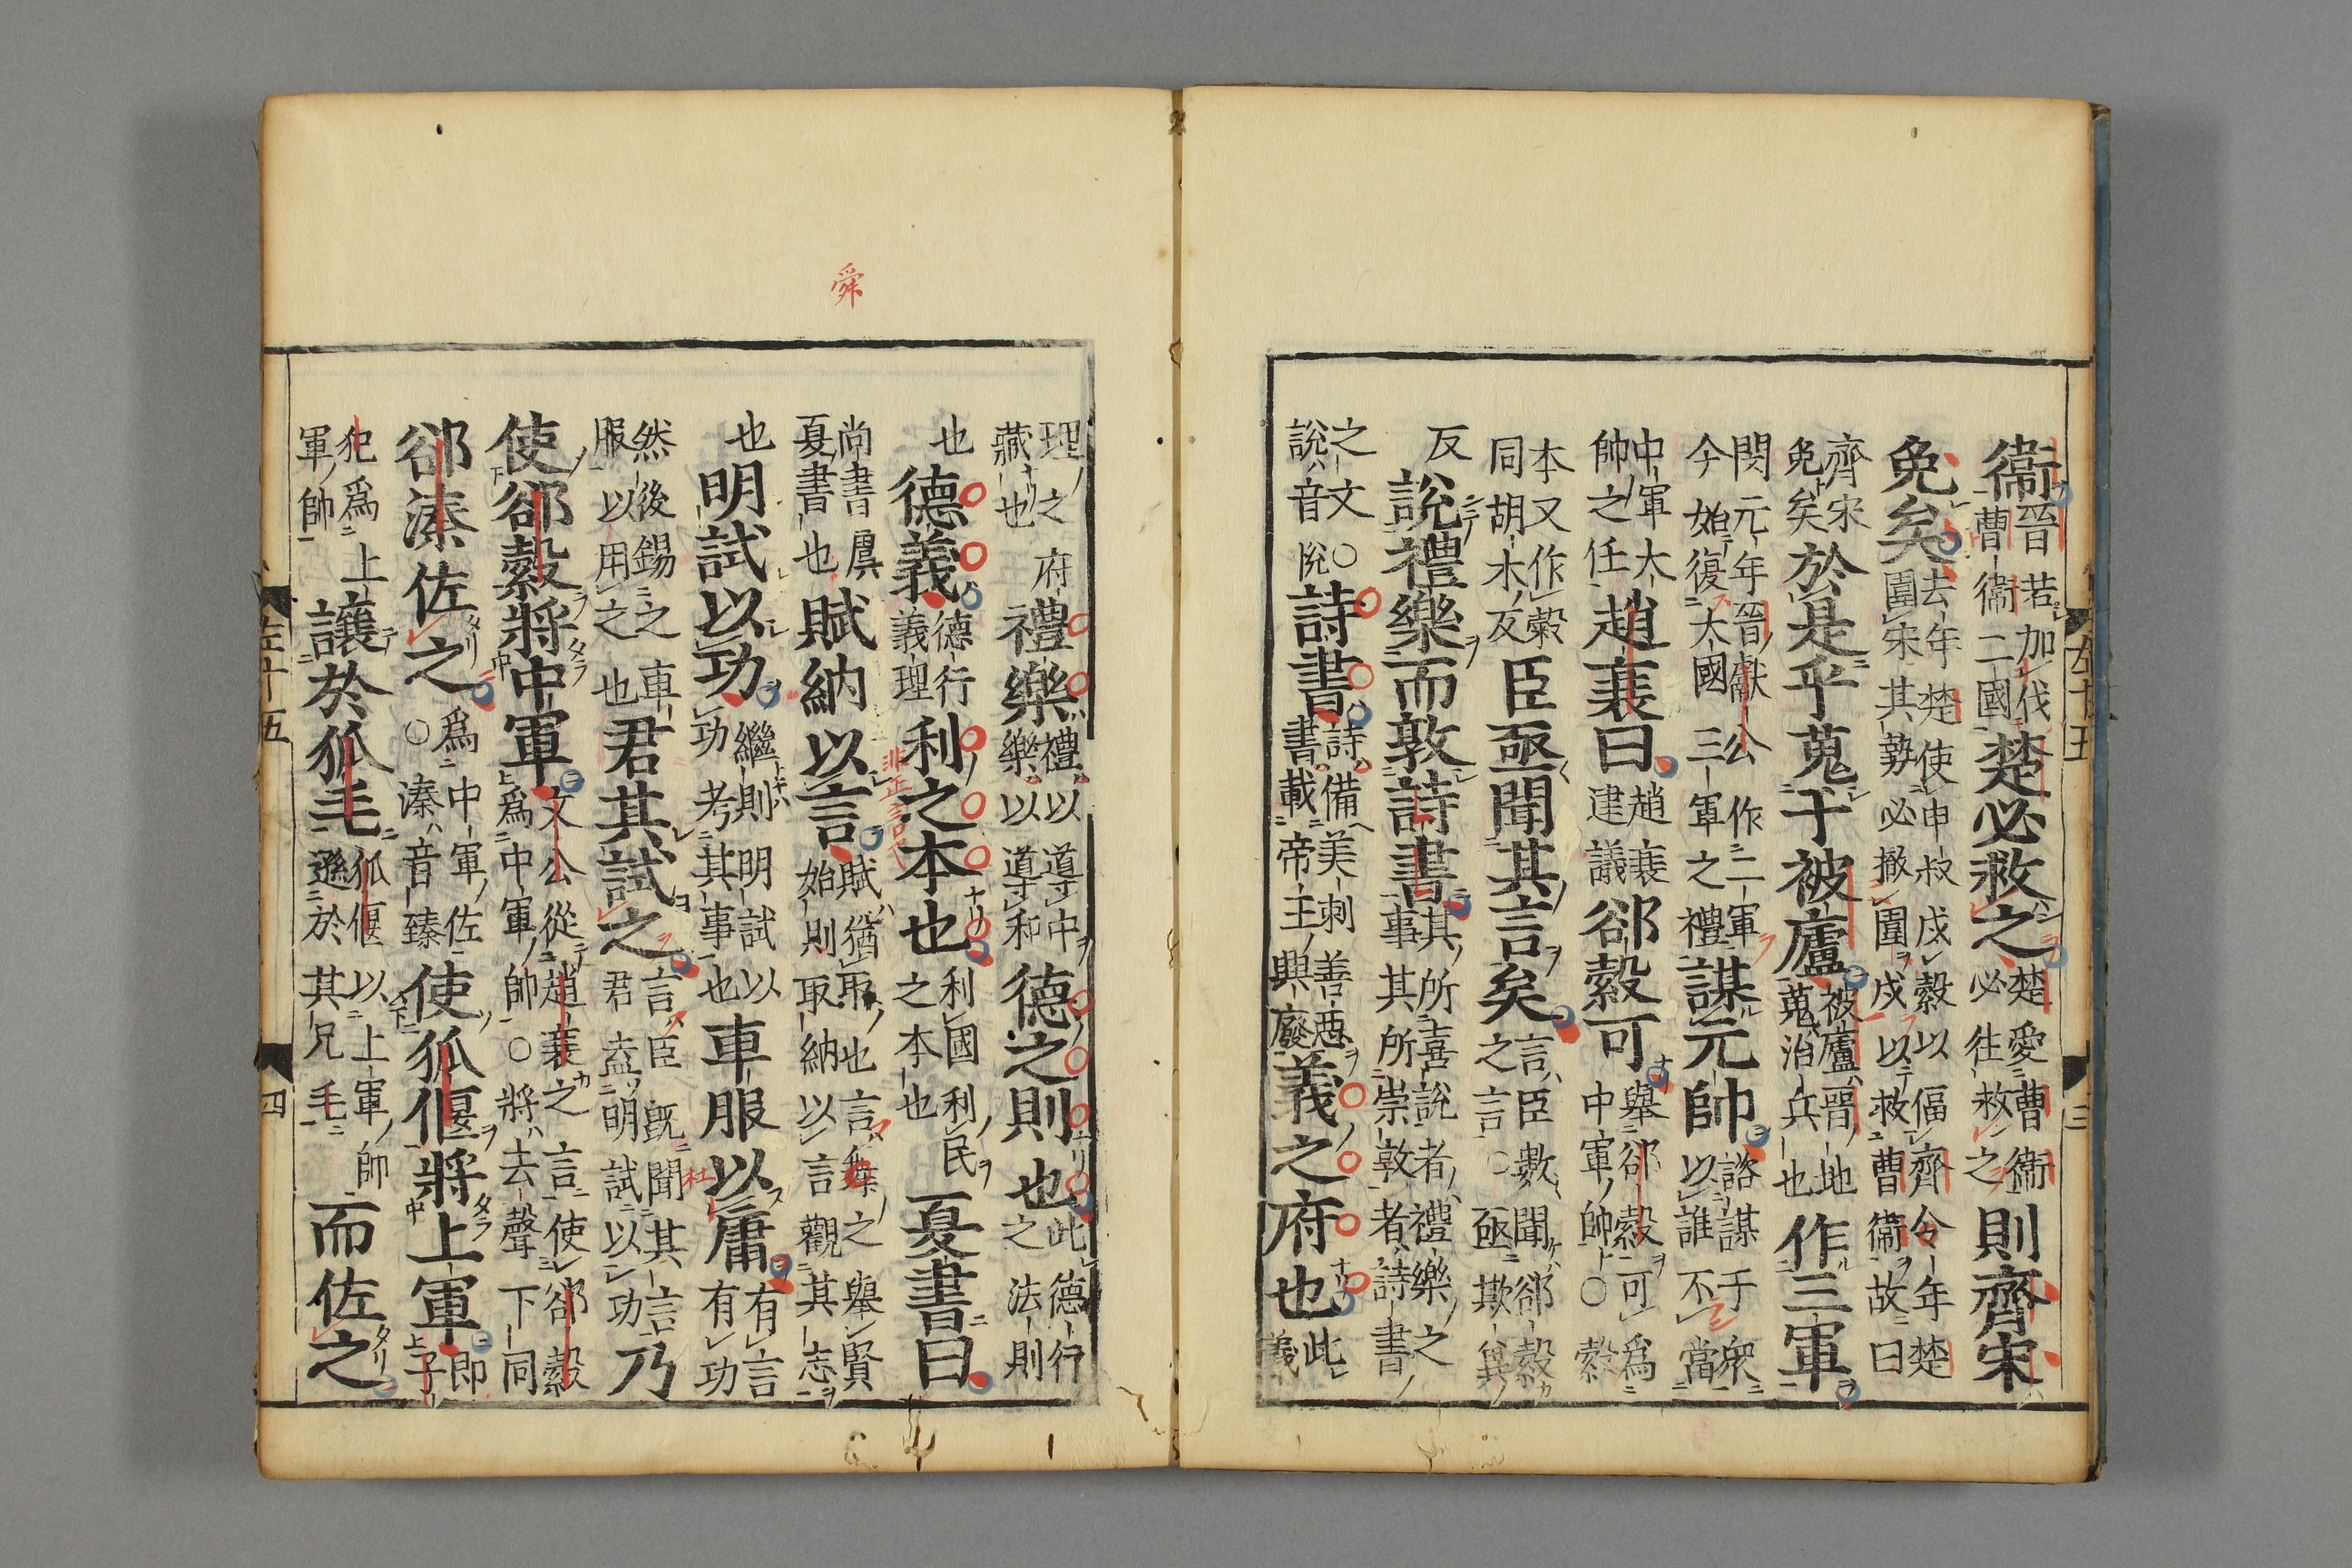 衞晉若加伐曹衞二國楚必救之楚愛曹衞必往救之則齊宋
免矣去年楚使申叔戍穀以偪齊今年楚圍宋其勢必撤圍戍以救曹衞故曰
齊宋免矣於是乎蒐于被廬被廬晉地蒐治兵也作三軍
閔元年晉獻公作二軍今始復大國三軍之禮謀元帥諮謀于衆以誰不當
中軍大帥之任趙衰曰趙衰建議郤縠可舉郤縠可爲中軍帥○縠
本又作縠同胡木反臣亟聞其言矣言臣數聞郤縠之言○亟欺兾
反說禮樂而敦詩書其所喜說者禮樂之事其所崇敦者詩書
之文○說音悅詩書詩備美刺善惡書載帝王興廢義之府也此義
左十五
三
舜
理之府藏也禮樂禮以導中樂以導和德之則也此德行之法則
也德義德行義理利之本也利國利民之本也夏書曰
尚書虞夏書也賦納以言賦猶取也言之舉賢始則取納以言觀其志
也明試以功繼則明試以功考其事也車服以庸有言有功
然後錫之車服以用之也君其試之言臣既聞其言君盍明試以功乃
使郤縠將中軍文公從趙衰之言使郤縠爲中軍帥○將去聲下同
郤溱佐之爲中軍佐○溱音臻使狐偃將上軍即子
犯爲上軍帥讓於狐毛狐偃以上軍帥遜於其兄毛而佐之
左十五
四